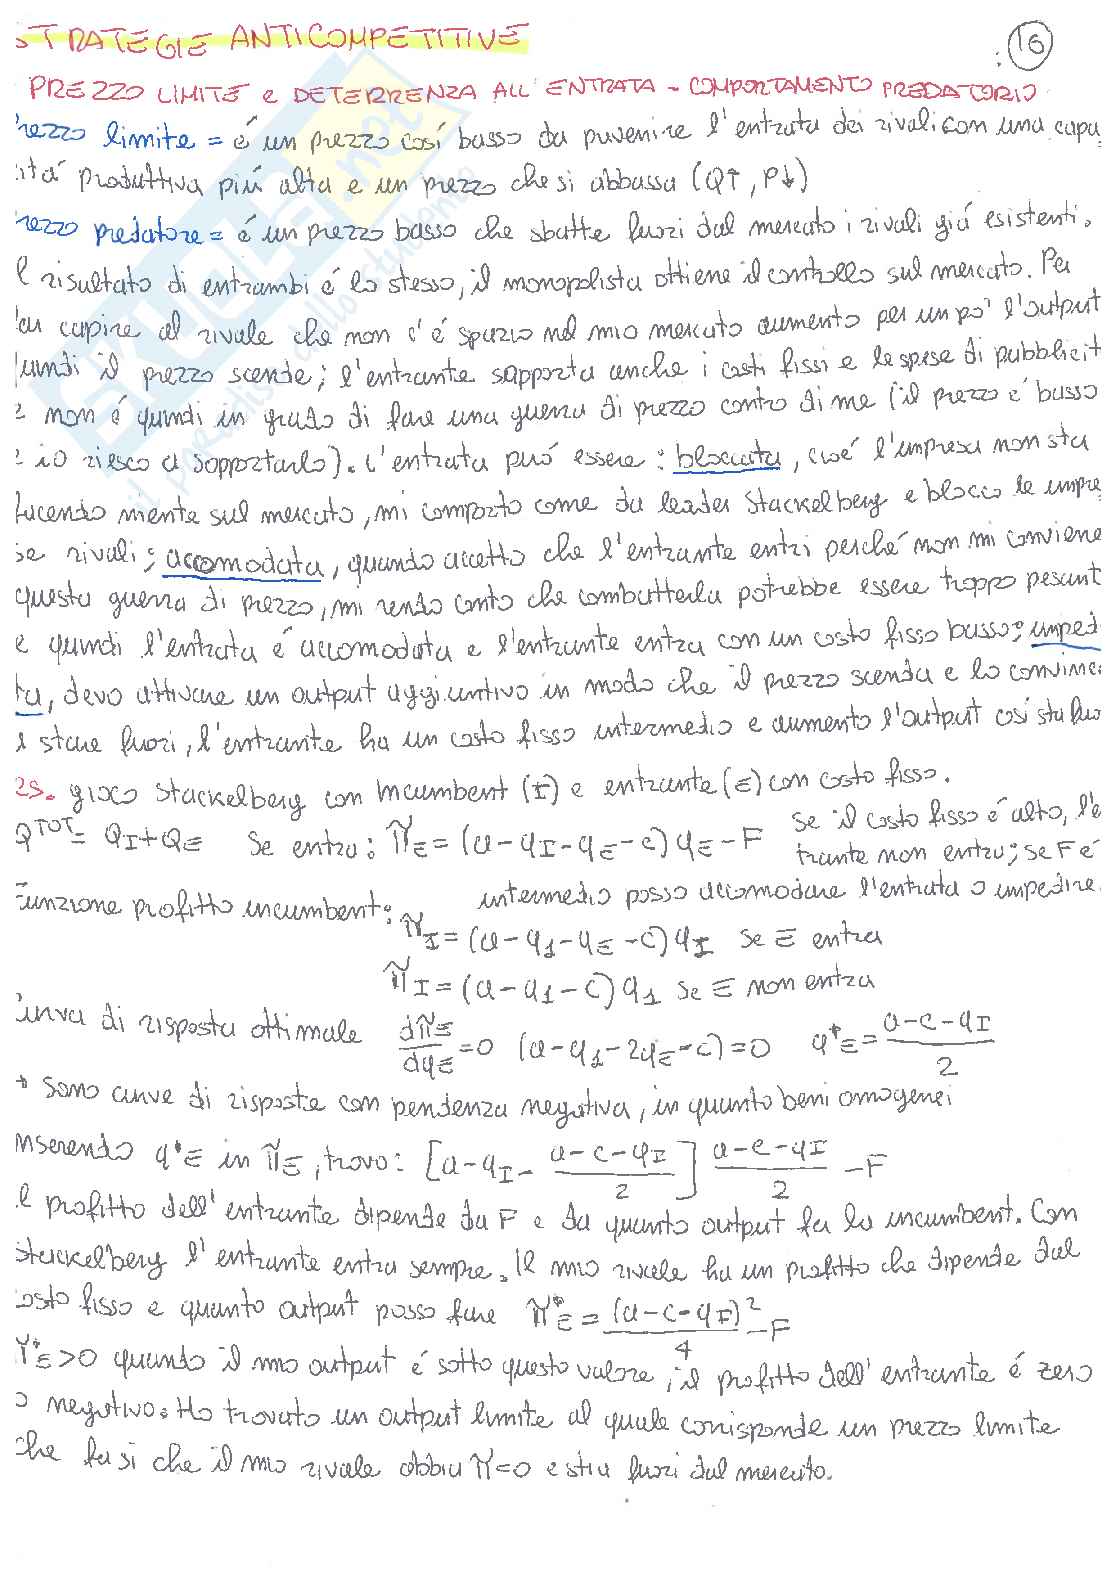 STRATEGIE ANTICOMPETITIVE
16
PREZZO LIMITE e DETERRENZA ALL'ENTRATA - COMPORTAMENTO PREDATORIO
rezzo limite = é un prezzo cosí basso da prevenire l'entrata dei rivali con una capa
itá produttiva piú alta e un prezzo che si abbassa (Q↑, P↓)
rezzo predatore = é un prezzo basso che sbatte fuori dal mercato i rivali giá esistenti.
l risultato di entrambi é lo stesso, il monopolista ottiene il controllo sul mercato. Per
far capire al rivale che non c'é spazio nel mio mercato aumento per un po' l'output
quindi il prezzo scende; l'entrante sopporta anche i costi fissi e le spese di pubblicit
e non é quindi in grado di fare una guerra di prezzo contro di me (il prezzo é basso
e io riesco a sopportarlo). L'entrata puó essere: bloccata, cioé l'impresa non sta
facendo niente sul mercato, mi comporto come da leader Stackelberg e blocco le impre
se rivali; accomodata, quando accetto che l'entrante entri perché non mi conviene
questa guerra di prezzo, mi rendo conto che combatterla potrebbe essere troppo pesant
e quindi l'entrata é accomodata e l'entrante entra con un costo fisso basso; imped
ta, devo attivare un output aggiuntivo in modo che il prezzo scenda e lo convinc
e stare fuori, l'entrante ha un costo fisso intermedio e aumento l'output cosí sta fuo
es. gioco Stackelberg con Incumbent (I) e entrante (E) con costo fisso.
Q^TOT = Q_I + Q_E Se entra: π_E = (a - q_I - q_E - c) q_E - F Se il costo fisso é alto, l'e
trante non entra; se F é
Funzione profitto incumbent: intermedio posso accomodare l'entrata o impedire.
π_I = (a - q_1 - q_E - c) q_I se E entra
π_I = (a - q_1 - c) q_1 se E non entra
curva di risposta ottimale dπ_E/dq_E = 0 (a - q_1 - 2q_E - c) = 0 q*_E = (a - c - q_I)/2
* sono curve di risposta con pendenza negativa, in quanto beni omogenei
nserendo q*_E in π_E, trovo: [a - q_I - (a - c - q_I)/2] (a - c - q_I)/2 - F
l profitto dell'entrante dipende da F e da quanto output fa lo incumbent. Con
stackelberg l'entrante entra sempre. Il mio rivale ha un profitto che dipende dal
costo fisso e quanto output posso fare π*_E = (a - c - q_I)²/4 - F
π*_E > 0 quando il mio output é sotto questo valore, il profitto dell'entrante é zero
o negativo. Ho trovato un output limite al quale corrisponde un prezzo limite
che fa si che il mio rivale abbia π = 0 e stia fuori dal mercato.